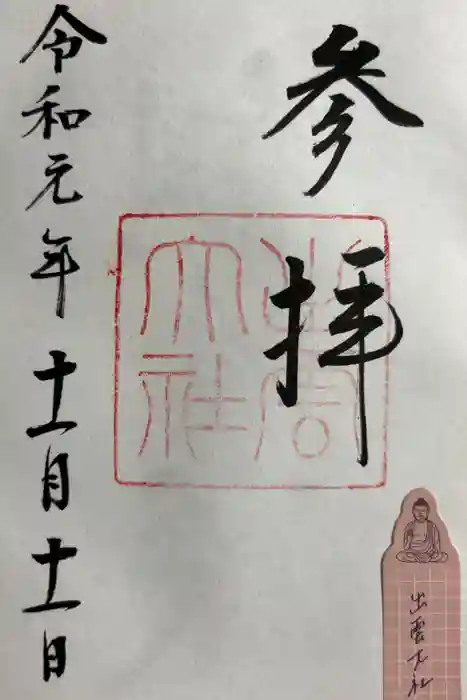 参拝
出雲大社
令和元年十一月十一日
出雲大社